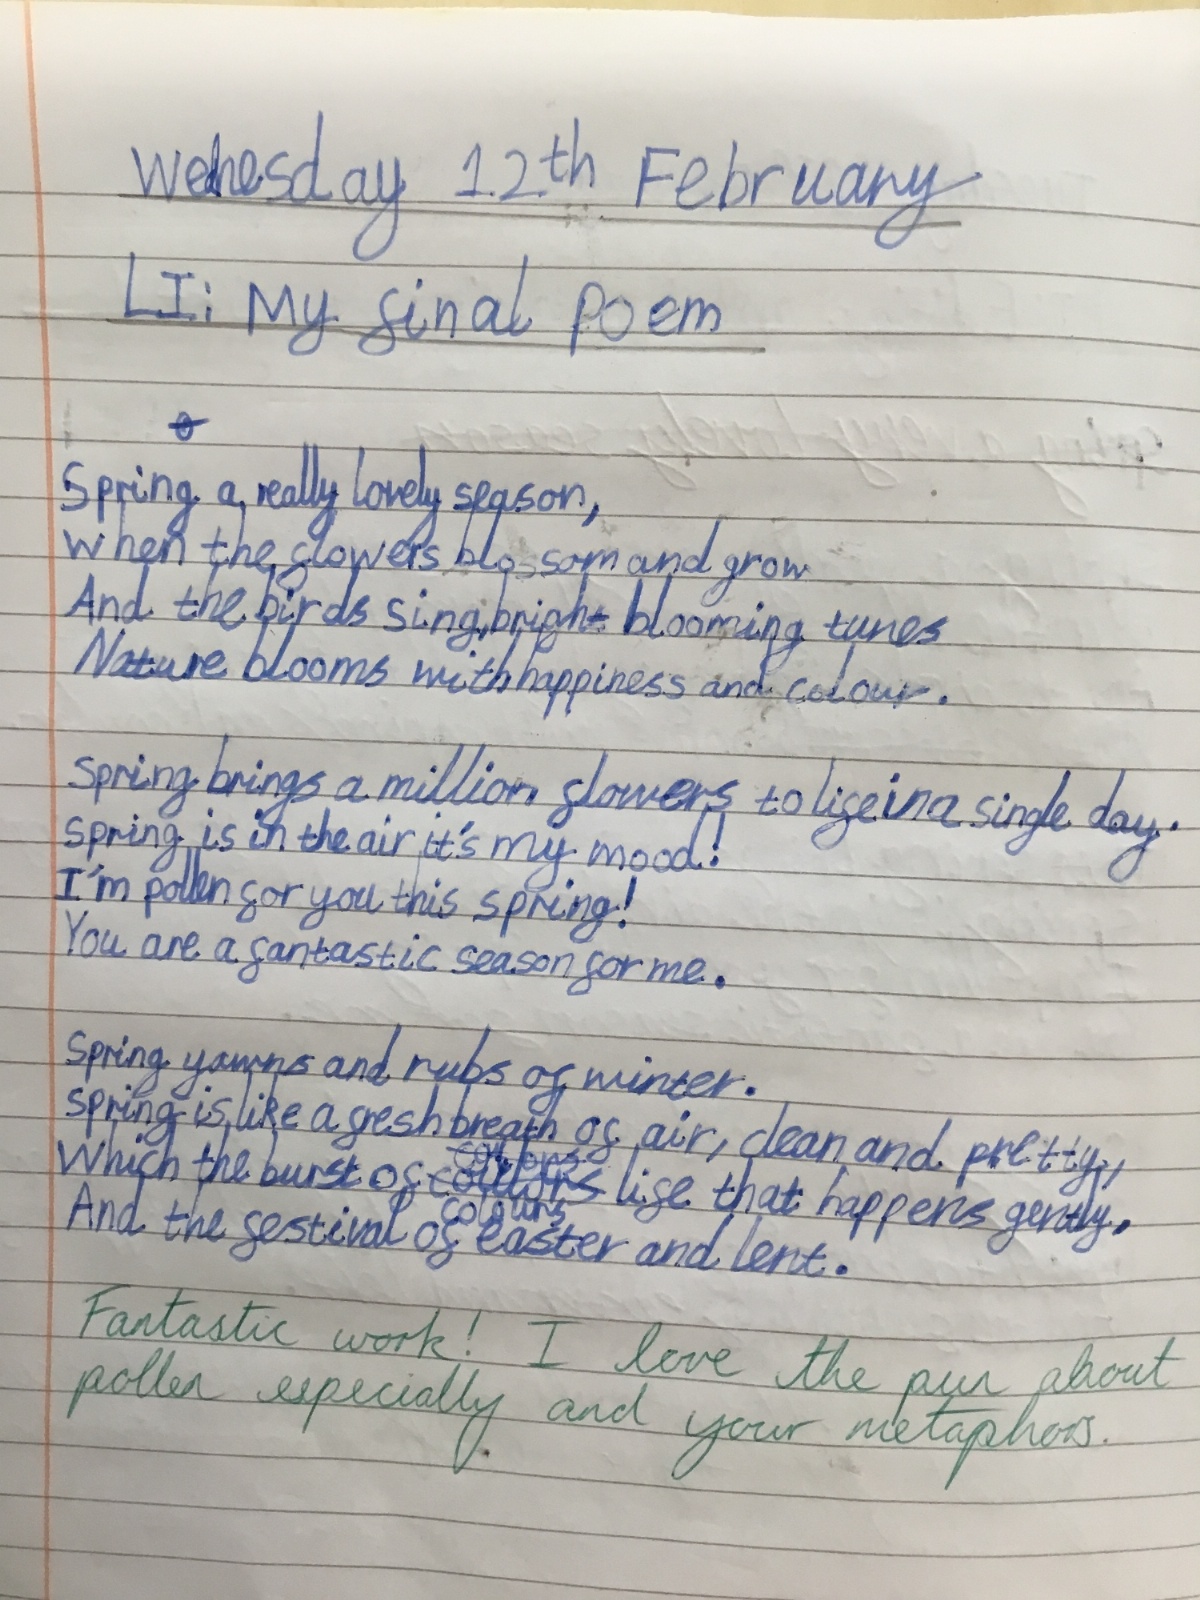 Wednesday 12th February
LI: My final poem
Spring a really lovely season,
When the flowers blossom and grow
And the birds sing, bright blooming tunes
Nature blooms with happiness and colour.
Spring brings a million flowers to life in a single day.
Spring is in the air it's my mood!
I'm pollen for you this spring!
You are a fantastic season for me.
Spring yawns and rubs of winter.
Spring is like a fresh breath of air, clean and pretty,
Which the burst of colours life that happens gently.
And the festival of easter and lent.
Fantastic work! I love the pun about
pollen especially and your metaphors.